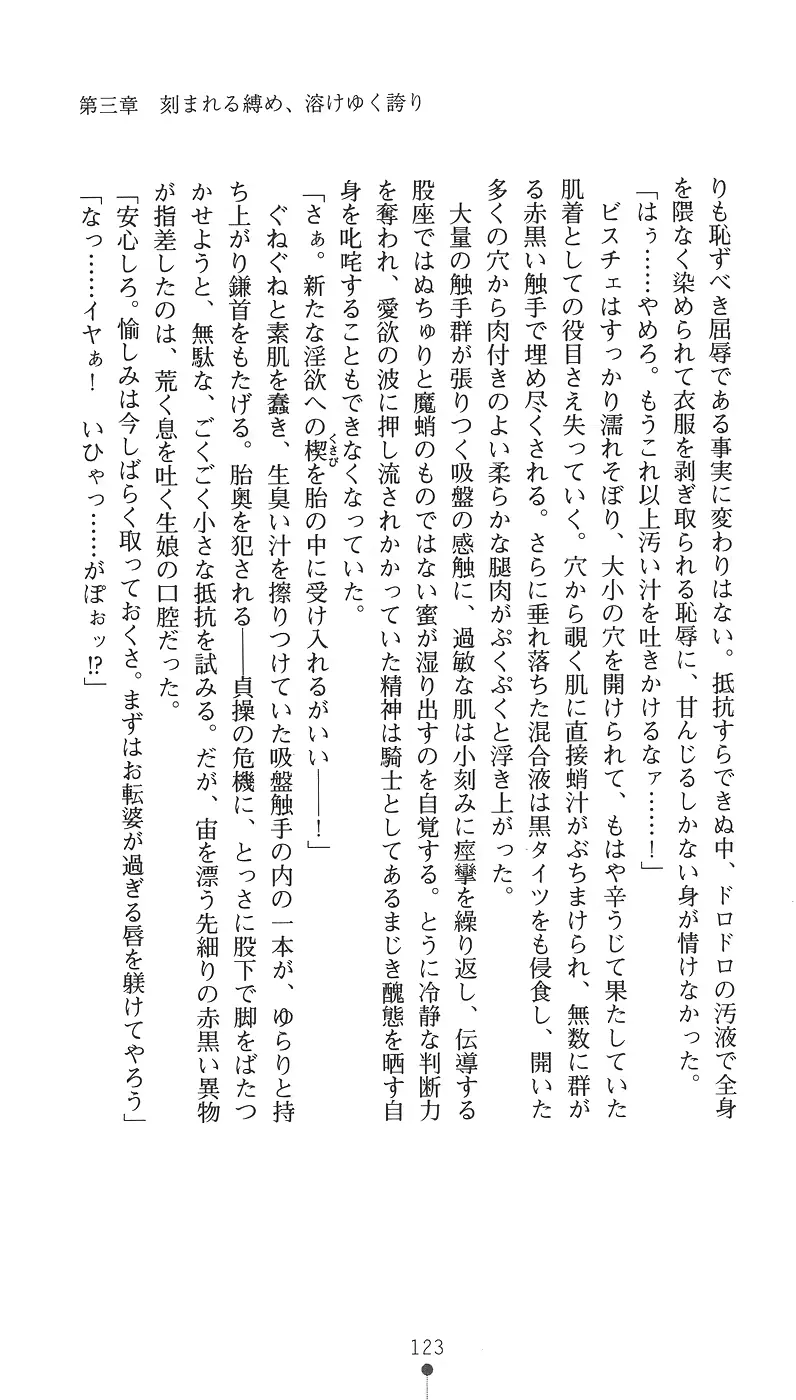 第三章　刻まれる縛め、溶けゆく誇り
りも恥ずべき屈辱である事実に変わりはない。抵抗すらできぬ中、ドロドロの汚液で全身
を隈なく染められて衣服を剥ぎ取られる恥辱に、甘んじるしかない身が情けなかった。
「はぅ……やめろ。もうこれ以上汚い汁を吐きかけるなァ……！」
　ビスチェはすっかり濡れそぼり、大小の穴を開けられて、もはや辛うじて果たしていた
肌着としての役目さえ失っていく。穴から覗く肌に直接蛸汁がぶちまけられ、無数に群が
る赤黒い触手で埋め尽くされる。さらに垂れ落ちた混合液は黒タイツをも侵食し、開いた
多くの穴から肉付きのよい柔らかな腿肉がぷくぷくと浮き上がった。
　大量の触手群が張りつく吸盤の感触に、過敏な肌は小刻みに痙攣を繰り返し、伝導する
股座ではぬちゅりと魔蛸のものではない蜜が湿り出すのを自覚する。とうに冷静な判断力
を奪われ、愛欲の波に押し流されかかっていた精神は騎士としてあるまじき醜態を晒す自
身を叱咤することもできなくなっていた。
「さぁ。新たな淫欲への楔くさびを胎の中に受け入れるがいい――！」
　ぐねぐねと素肌を蠢き、生臭い汁を擦りつけていた吸盤触手の内の一本が、ゆらりと持
ち上がり鎌首をもたげる。胎奥を犯される――貞操の危機に、とっさに股下で脚をばたつ
かせようと、無駄な、ごくごく小さな抵抗を試みる。だが、宙を漂う先細りの赤黒い異物
が指差したのは、荒く息を吐く生娘の口腔だった。
「安心しろ。愉しみは今しばらく取っておくさ。まずはお転婆が過ぎる唇を躾けてやろう」
「なっ……イヤぁ！　いひゃっ……がぽぉッ!?」
123